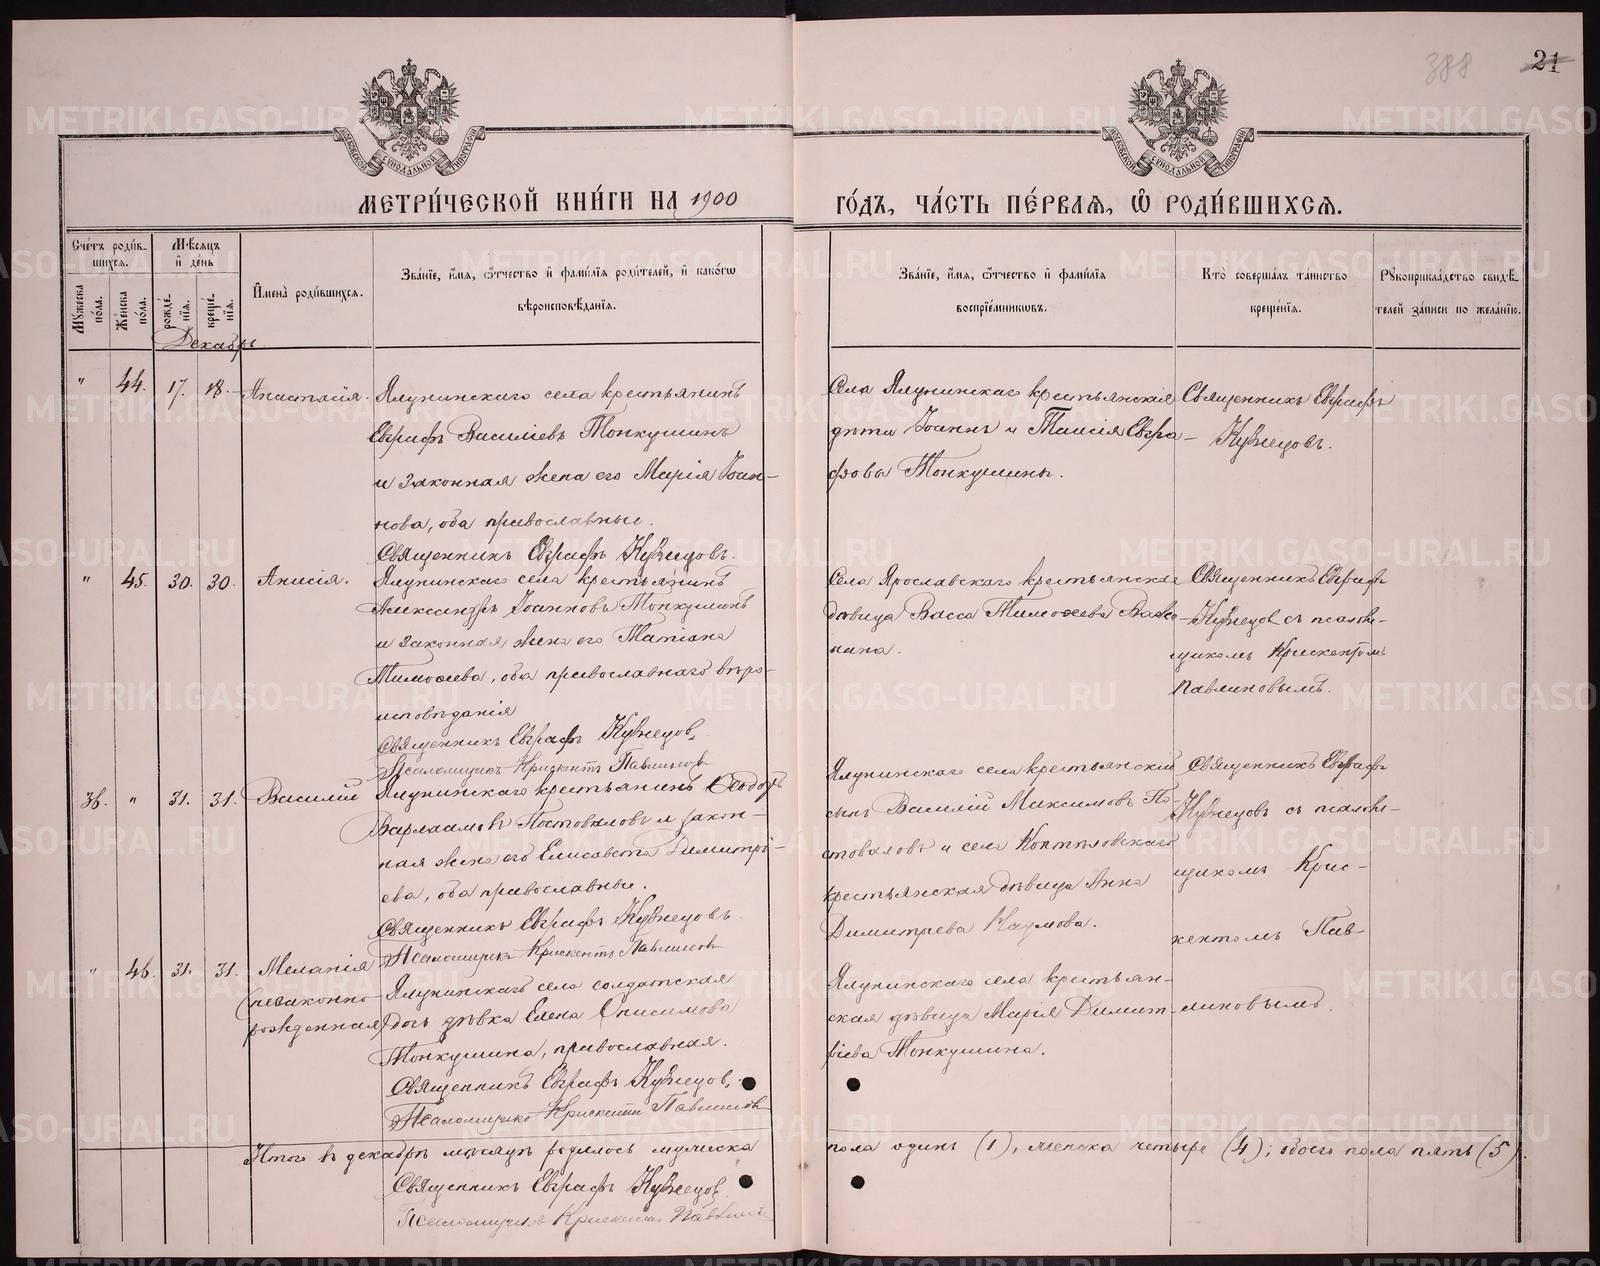 388
21
МЕТРИ́ЧЕСКОЙ КНИ́ГИ НА 1900
ГО́ДЪ, ЧА́СТЬ ПЕ́РВАЯ, Ѡ҆ РОДИ́ВШИХСЯ.
Сче́тъ роди́в-
шихся.
Му́жеска по́ла.
Же́нска по́ла.
Мѣ́сяцъ
и҆ де́нь
рожде́-
нїя.
креще́-
нїя.
И҆мена̀ роди́вшихся.
Зва́нїе, и҆́мя, ѻ҆́тчество и҆ фами́лїя роди́телей, и҆ како́гѡ
вѣроисповѣ́данїя.
Зва́нїе, и҆́мя, ѻ҆́тчество и҆ фами́лїя
воспрїе́мниковъ.
Кто̀ соверша́лъ та́инство
креще́нїя.
Рꙋкоприкла́дство свидѣ́-
телей за́писи по жела́нїю.
Декабрь
" 44. 17. 18. Анастасія.
Ялунинскаго села крестьянинъ
Евграфъ Василіевъ Топкушинъ
и законная жена его Марія Іоан-
нова, оба православные.
Священникъ Евграфъ Кузнецовъ.
Села Ялунинскаго крестьянская
дѣти Іоаннъ и Таисія Евгра-
фовы Топкушины.
Священникъ Евграфъ
Кузнецовъ.
" 45. 30. 30. Анисія.
Ялунинскаго села крестьянинъ
Александръ Іоанновъ Топкушинъ
и законная жена его Татіана
Тимоѳеева, оба православнаго вѣро-
исповѣданія
Священникъ Евграфъ Кузнецовъ.
Псаломщикъ Крискентъ Павлиновъ
Села Ярославскаго крестьянская
дѣвица Васса Тимоѳеева
нина.
Священникъ Евграфъ
Кузнецовъ съ псалом-
щикомъ Крискентомъ
Павлиновымъ.
38. " 31. 31. Василій
Ялунинскаго крестьянинъ Ѳеодоръ
Варлаамовъ Постоваловъ и закон-
ная жена его Елисавета Димитрі-
ева, оба православные.
Священникъ Евграфъ Кузнецовъ.
Псаломщикъ Крискентъ Павлиновъ
Ялунинскаго села крестьянскій
сынъ Василій Максимовъ По-
стоваловъ и села Коптѣловскаго
крестьянская дѣвица Анна
Димитріева Наумова.
Священникъ Евграфъ
Кузнецовъ съ псалом-
щикомъ Крис-
кентомъ Пав-
линовымъ.
" 46. 31. 31. Меланія
(незаконно-
рожденная)
Ялунинскаго села солдатская
дочь дѣвка Елена Онисимова
Топкушина, православная.
Священникъ Евграфъ Кузнецовъ.
Псаломщикъ Крискентъ Павлиновъ
Ялунинскаго села крестьян-
ская дѣвица Марія Димит-
ріева Топкушина.
Итого въ декабрѣ мѣсяцѣ родилось мужеска
пола одинъ (1), женска четыре (4); обоего пола пять (5).
Священникъ Евграфъ Кузнецовъ.
Псаломщикъ Крискентъ Павлинов
METRIKI.GASO-URAL.RU